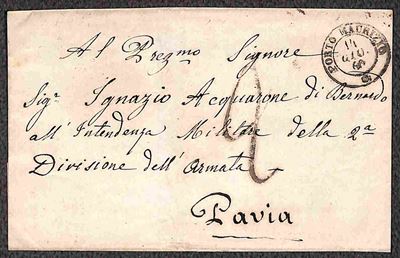 Al Prezmo Signore
Sigr Ignazio Acquarone di Bernardo
all'Intendenza Militare della 2a
Divisione dell'Armata
Pavia
2
PORTO MAURIZIO
GIU.